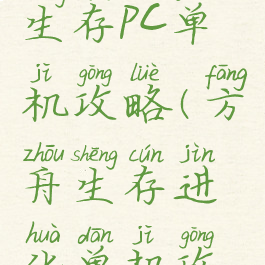 生存PC单
jī gōng lüè fāng
机攻略(方
zhōu shēng cún jìn
舟生存进
huà dān jī gōng
化单机攻